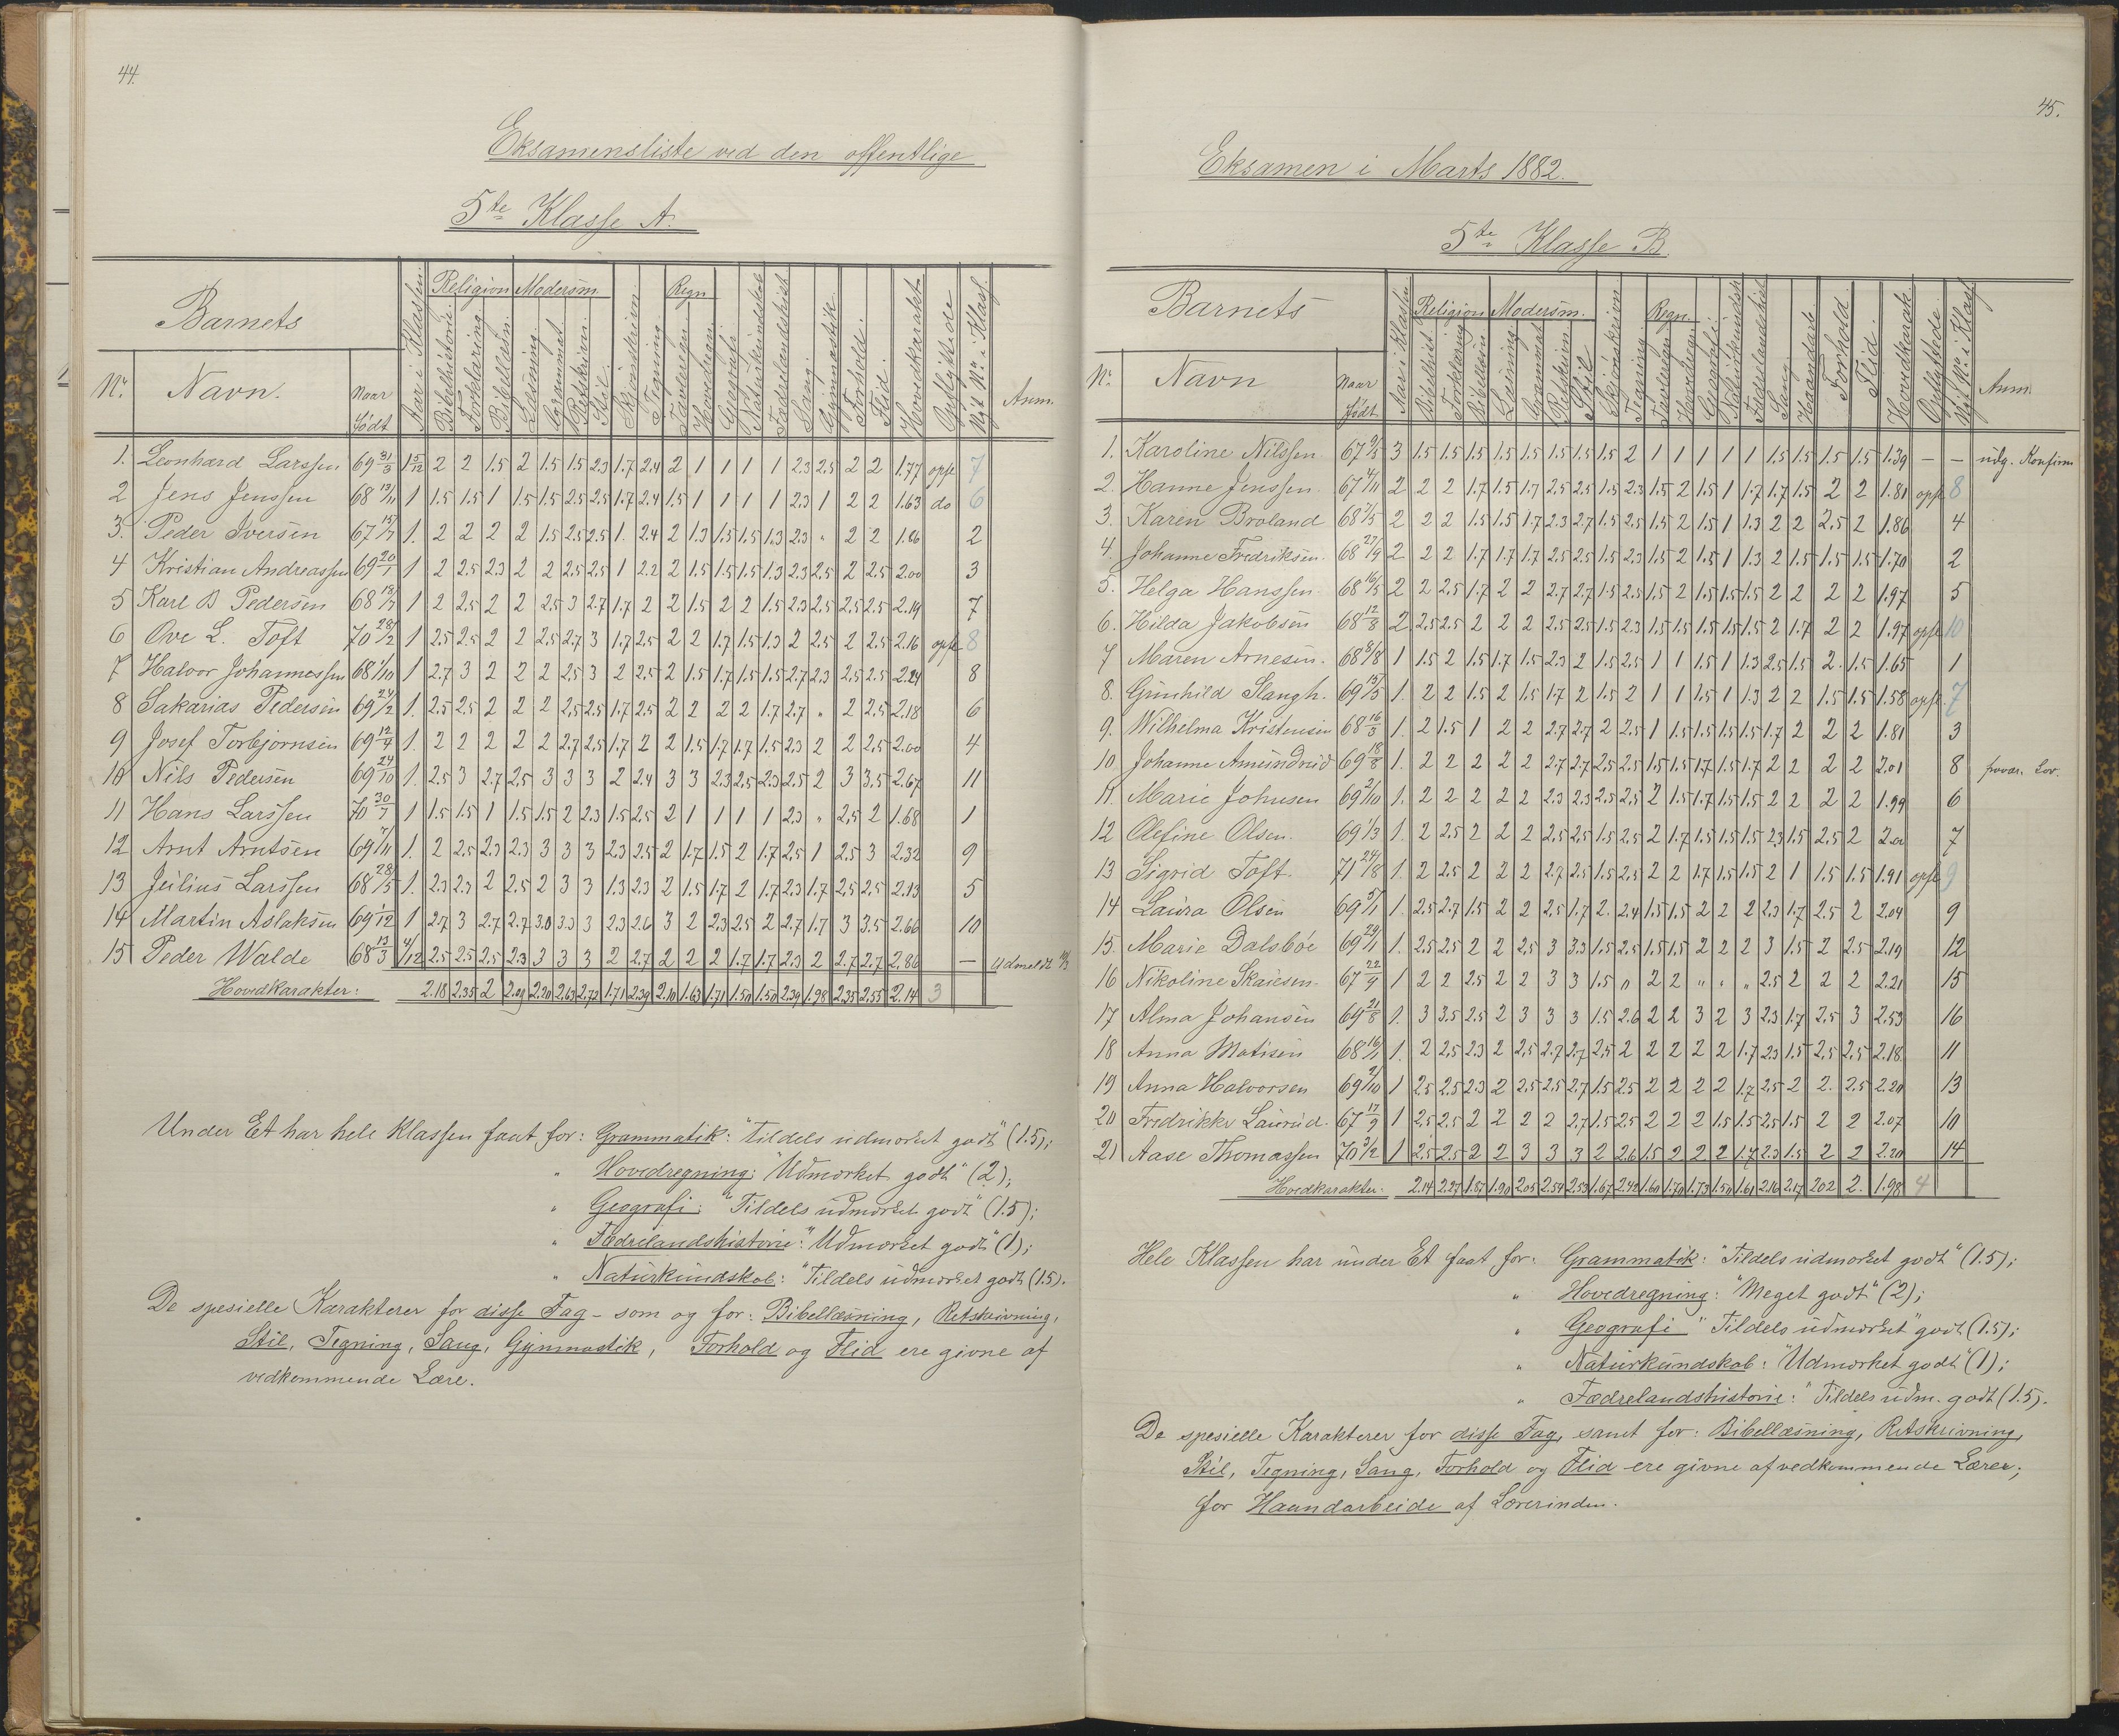 44.
Eksamensliste ved den offentlige
5te Klasse A.
Barnets
Religion Modersm. Regn
No. Navn. Naar født Aar i Klassen Bibelhistorie Forklaring Bibellæsn. Læsning Grammat. Retskrivn. Stil. Skjönskrivn. Tegning Tavleregn. Hovedregn. Geografi Naturkundskab Fædrelandshist. Sang Gymnastik. Forhold. Flid. Hovedkarakt. Opflyttede Nyt No. i Klas. Anm.
1. Leonhard Larssen 69 31/3 1 5/12 2 2 1.5 2 1.5 1.5 2.3 1.7 2.4 2 1 1 1 1 2.3 2.5 2 2 1.77 opfl 7
2 Jens Jenssen 68 13/11 1 1.5 1.5 1 1.5 1.5 2.5 2.5 1.7 2.4 1.5 1 1 1 1 2.3 1 2 2 1.63 do 6
3. Peder Iversen 67 15/7 1. 2 2 2 2 1.5 2.5 2.5 1. 2.4 2 1.3 1.5 1.5 1.3 2.3 " 2 2 1.86 2
4 Kristian Andreassen 69 20/1 1 2 2.5 2.3 2 2 2.5 2.5 1 2.2 2 1.5 1.5 1.5 1.3 2.3 2.5 2 2.5 2.00 3
5 Karl B Pedersen 68 18/7 1 2 2.5 2 2 2.5 3 2.7 1.7 2 2 1.5 2 2 1.5 2.3 2.5 2.5 2.5 2.19 7
6 Ove L. Toft 70 28/2 1 2.5 2.5 2 2 2.5 2.7 3 1.7 2.5 2 2 1.7 1.5 1.3 2 2.5 2 2.5 2.16 opfl 8
7 Halvor Johannessen 68 1/10 1 2.7 3 2 2 2 2.5 3 2 2.5 2 1.5 1.7 1.5 1.5 2.7 2.3 2.5 2.5 2.24 8
8 Sakarias Pedersen 69 24/2 1. 2.5 2.5 2 2 2 2.5 2.5 1.7 2.5 2 2 2 2 1.7 2.7 " 2 2.5 2.18 6
9 Josef Torbjornsen 69 12/4 1. 2 2 2 2 2 2.7 2.5 1.7 2 2 1.5 1.7 1.7 1.5 2.3 2 2 2.5 2.00 4
10 Nils Pedersen 69 24/10 1. 2.5 3 2.7 2.5 3 3 3 2 2.4 3 3 2.3 2.5 2.3 2.5 2 3 3.5 2.67 11
11 Hans Larssen 70 30/7 1 1.5 1.5 1 1.5 1.5 2 2.3 1.5 2.5 2 1 1 1 1 2.3 " 2.5 2 1.68 1
12 Arnt Arntsen 69 7/11 1. 2 2.5 2.3 2.3 3 3 3 2.3 2.5 2 1.7 1.5 2 1.7 2.5 1 2.5 3 2.32 9
13 Julius Larssen 68 28/5 1. 2.3 2.3 2 2.5 2 3 3 1.3 2.3 2 1.5 1.7 2 1.7 2.3 1.7 2.5 2.5 2.13 5
14 Martin Aslaksen 69 1/12 1 2.7 3 2.7 2.7 3.0 3.3 3 2.3 2.6 3 2 2.3 2.5 2 2.7 1.7 3 3.5 2.66 10
15 Peder Walde 68 13/3 4/12 2.5 2.5 2.5 2.3 3 3 3 2 2.7 2 2 2 1.7 1.7 2.3 2 2.7 2.7 2.86 — Udmeldt
Hovedkarakter: 2.18 2.35 2 2.09 2.20 2.63 2.72 1.71 2.39 2.10 1.63 1.71 1.50 1.50 2.39 1.98 2.35 2.55 2.14 3
Under Et har hele Klassen faat for: Grammatik: "Tildels udmørket godt" (1.5);
" Hovedregning: "Udmørket godt" (2);
" Geografi: "Tildels udmørket godt" (1.5);
" Fædrelandshistorie: "Udmørket godt" (1);
" Naturkundskab: "Tildels udmørket godt (1.5).
De spesielle Karakterer for disse Fag - som og for: Bibellæsning, Retskrivning,
Stil, Tegning, Sang, Gymnastik, Forhold og Flid ere givne af
vedkommende Lære.
45.
Eksamen i Marts 1882.
5te Klasse B.
Barnets
Religion Modersm. Regn.
No. Navn Naar født Aar i Klassen Bibelhist. Forklaring Bibellæsn Læsning Grammat. Retskrivn. Stil Skjönskrivn Tegning Tavleregn Hovedregn. Geografi Naturkundsk. Fædrelandshist. Sang Haandarb. Forhold. Flid. Hovedkarak. Opflyttede Nyt No. i Klas. Anm.
1. Karoline Nilssen 67 9/5 3 1.5 1.5 1.5 1.5 1.5 1.5 1.5 1.5 2 1 1 1 1 1 1.5 1.5 1.5 1.5 1.39 — — udg. Konfirm
2. Hanne Jenssen. 67 4/11 2 2 2 1.7 1.5 1.7 2.5 2.5 1.5 2.3 1.5 2 1.5 1 1.7 1.7 1.5 2 2 1.81 opfl 8
3. Karen Broland 68 7/5 2 2 2 1.5 1.5 1.7 2.3 2.7 1.5 2.5 1.5 2 1.5 1 1.3 2 2 2.5 2 1.86 4
4. Johanne Fredriksen. 68 27/9 2 2 2 1.7 1.7 1.7 2.5 2.5 1.5 2.3 1.5 2 1.5 1 1.3 2 1.5 1.5 1.5 1.70 2
5. Helga Hanssen 68 16/5 2 2 2.5 1.7 2 2 2.7 2.7 1.5 2.5 1.5 2 1.5 1.5 1.5 2 2 2 2 1.97 5
6. Hilda Jakobsen 68 12/3 2 2.5 2.5 2 2 2 2.5 2.5 1.5 2.3 1.5 1.5 1.5 1.5 1.5 2 1.7 2 2 1.97 opfl 10
7 Maren Arnesen. 68 8/8 1 1.5 2 1.5 1.7 1.5 2.3 2 1.5 2.5 1 1 1.5 1 1.3 2.5 1.5 2. 1.5 1.65 1
8. Gunhild Slangh. 69 15/5 1. 2 2 1.5 2 1.5 1.7 2 1.5 2 1 1 1.5 1 1.3 2 2 1.5 1.5 1.58 opfl. 7
9. Wilhelma Kristensen 68 16/3 1. 2 1.5 1 2 2 2.7 2.7 2 2.5 1 1.5 1.5 1.5 1.5 1.7 2 2 2 1.81 3
10. Johanne Amundrud 69 18/8 1. 2 2 2 2 2 2.7 2.7 2.5 2.5 1.5 1.5 1.7 1.5 1.7 2 2 2 2 2.01 8
11. Marie Johnsen 69 2/10 1. 2 2 2 2 2 2.3 2.3 2.5 2.5 2 1.5 1.7 1.5 1.5 2 2 2 2 1.99 6
12 Olefine Olsen. 69 1/3 1. 2 2.5 2 2 2 2.5 2.5 1.5 2.5 2 1.7 1.5 1.5 1.5 2.3 1.5 2.5 2 2.01 7
13 Sigrid Toft. 71 24/8 1. 2 2.5 2 2 2 2.7 2.5 1.5 2.5 2 2 1.7 1.5 1.5 2 1 1.5 1.5 1.91 opfl 9
14 Laura Olsen 69 5/1 1. 2.5 2.7 1.5 2 2 2.5 1.7 2. 2.4 1.5 1.5 2 2 2 2.3 1.7 2.5 2 2.04 9
15. Marie Dalsböe 69 29/1 1. 2.5 2.5 2 2 2.5 3 3.3 1.5 2.5 1.5 1.5 2 2 2 3 1.5 2 2.5 2.19 12
16 Nikoline Skaiesen. 67 22/9 1 2 2 2.5 2 2 3 3 1.5 " 2 2 " " " 2.5 2 2 2 2.21 15
17 Alma Johansen 69 21/8 1. 3 3.5 2.5 2 3 3 3 1.5 2.6 2 2 3 2 3 2.3 1.7 2.5 3 2.53 16
18 Anna Matisen 68 16/1 1. 2 2.5 2.3 2 2.5 2.7 2.7 2.5 2 2 2 2 2 1.7 2.3 1.5 2.5 2.5 2.18 11
19 Anna Halvorsen 69 2/10 1 2.5 2.5 2.3 2 2.5 2.5 2.7 1.5 2.5 2 2 2 2 1.7 2.5 2 2. 2.5 2.20 13
20 Fredrikke Laurud. 67 17/9 1 2.5 2.5 2 2 2 2 2.7 1.5 2.5 2 2 2 1.5 1.5 2.5 1.5 2 2 2.07 10
21 Aase Thomassen 70 3/2 1 2.5 2.5 2 2 3 3 3 2 2.6 1.5 2 2 2 1.7 2.3 1.5 2 2 2.20 14
Hovedkarakter. 2.14 2.27 1.87 1.90 2.05 2.54 2.53 1.67 2.42 1.60 1.70 1.73 1.50 1.61 2.16 2.17 2.02 2. 1.98 4
Hele Klassen har under Et faat for: Grammatik: "Tildels udmørket godt" (1.5);
" Hovedregning: "Meget godt" (2);
" Geografi "Tildels udmørket" godt (1.5);
" Naturkundskab: "Udmørket godt" (1);
" Fædrelandshistorie: "Tildels udm. godt (1.5).
De spesielle Karakterer for disse Fag, samt for: Bibellæsning, Retskrivning,
Stil, Tegning, Sang, Forhold og Flid ere givne af vedkommende Lærer;
for Haandarbeide af Lærerinden.